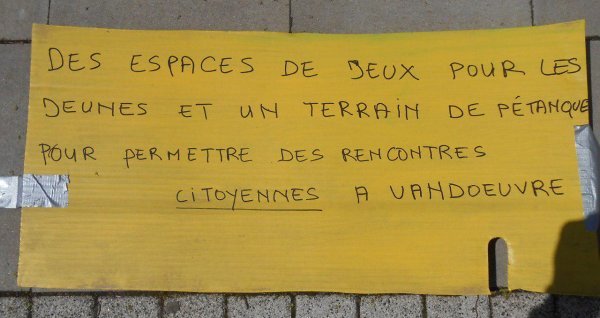 DES ESPACES DE JEUX POUR LES
JEUNES ET UN TERRAIN DE PÉTANQUE
POUR PERMETTRE DES RENCONTRES
CITOYENNES A VANDOEUVRE